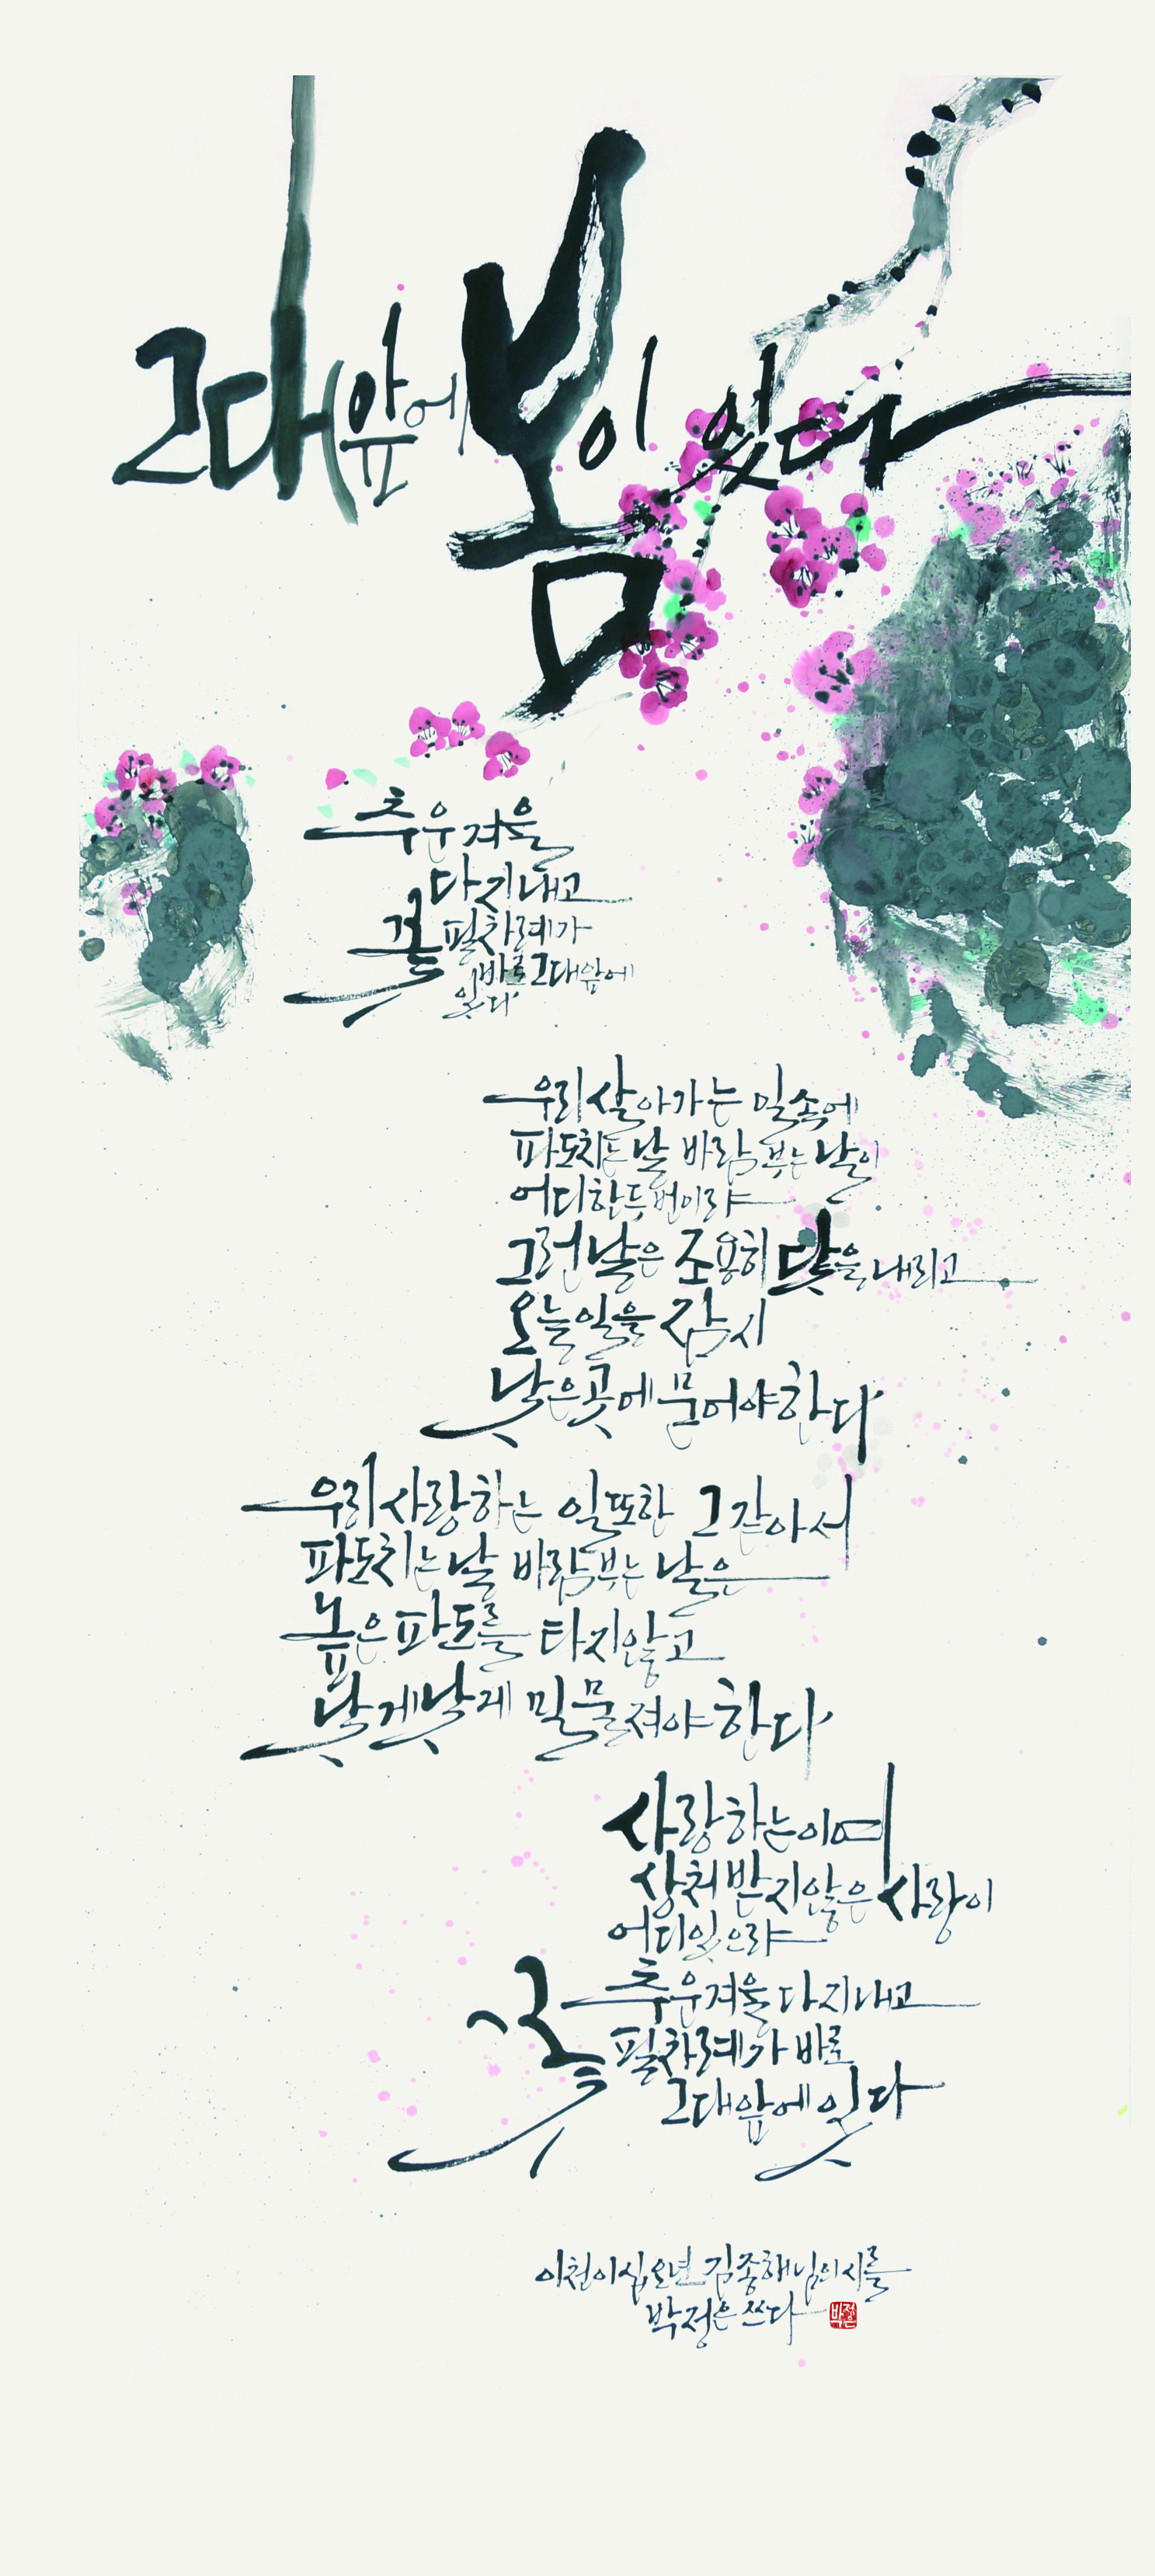 그대 앞에 봄이 있다
추운 겨울
다 지내고
꽃 필 차례가
바로 그대 앞에
있다
우리 살아가는 일 속에
파도치는 날 바람 부는 날이
어디 한두 번이랴
그런 날은 조용히 닻을 내리고
오늘 일을 잠시
낮은 곳에 묻어야 한다
우리 사랑하는 일 또한 그 같아서
파도치는 날 바람 부는 날은
높은 파도를 타지 않고
낮게 낮게 밀물져야 한다
사랑하는 이여
상처받지 않은 사랑이
어디 있으랴
추운 겨울 다 지내고
꽃 필 차례가 바로
그대 앞에 있다
이천이십오년 김종해님의 시를
박정은 쓰다